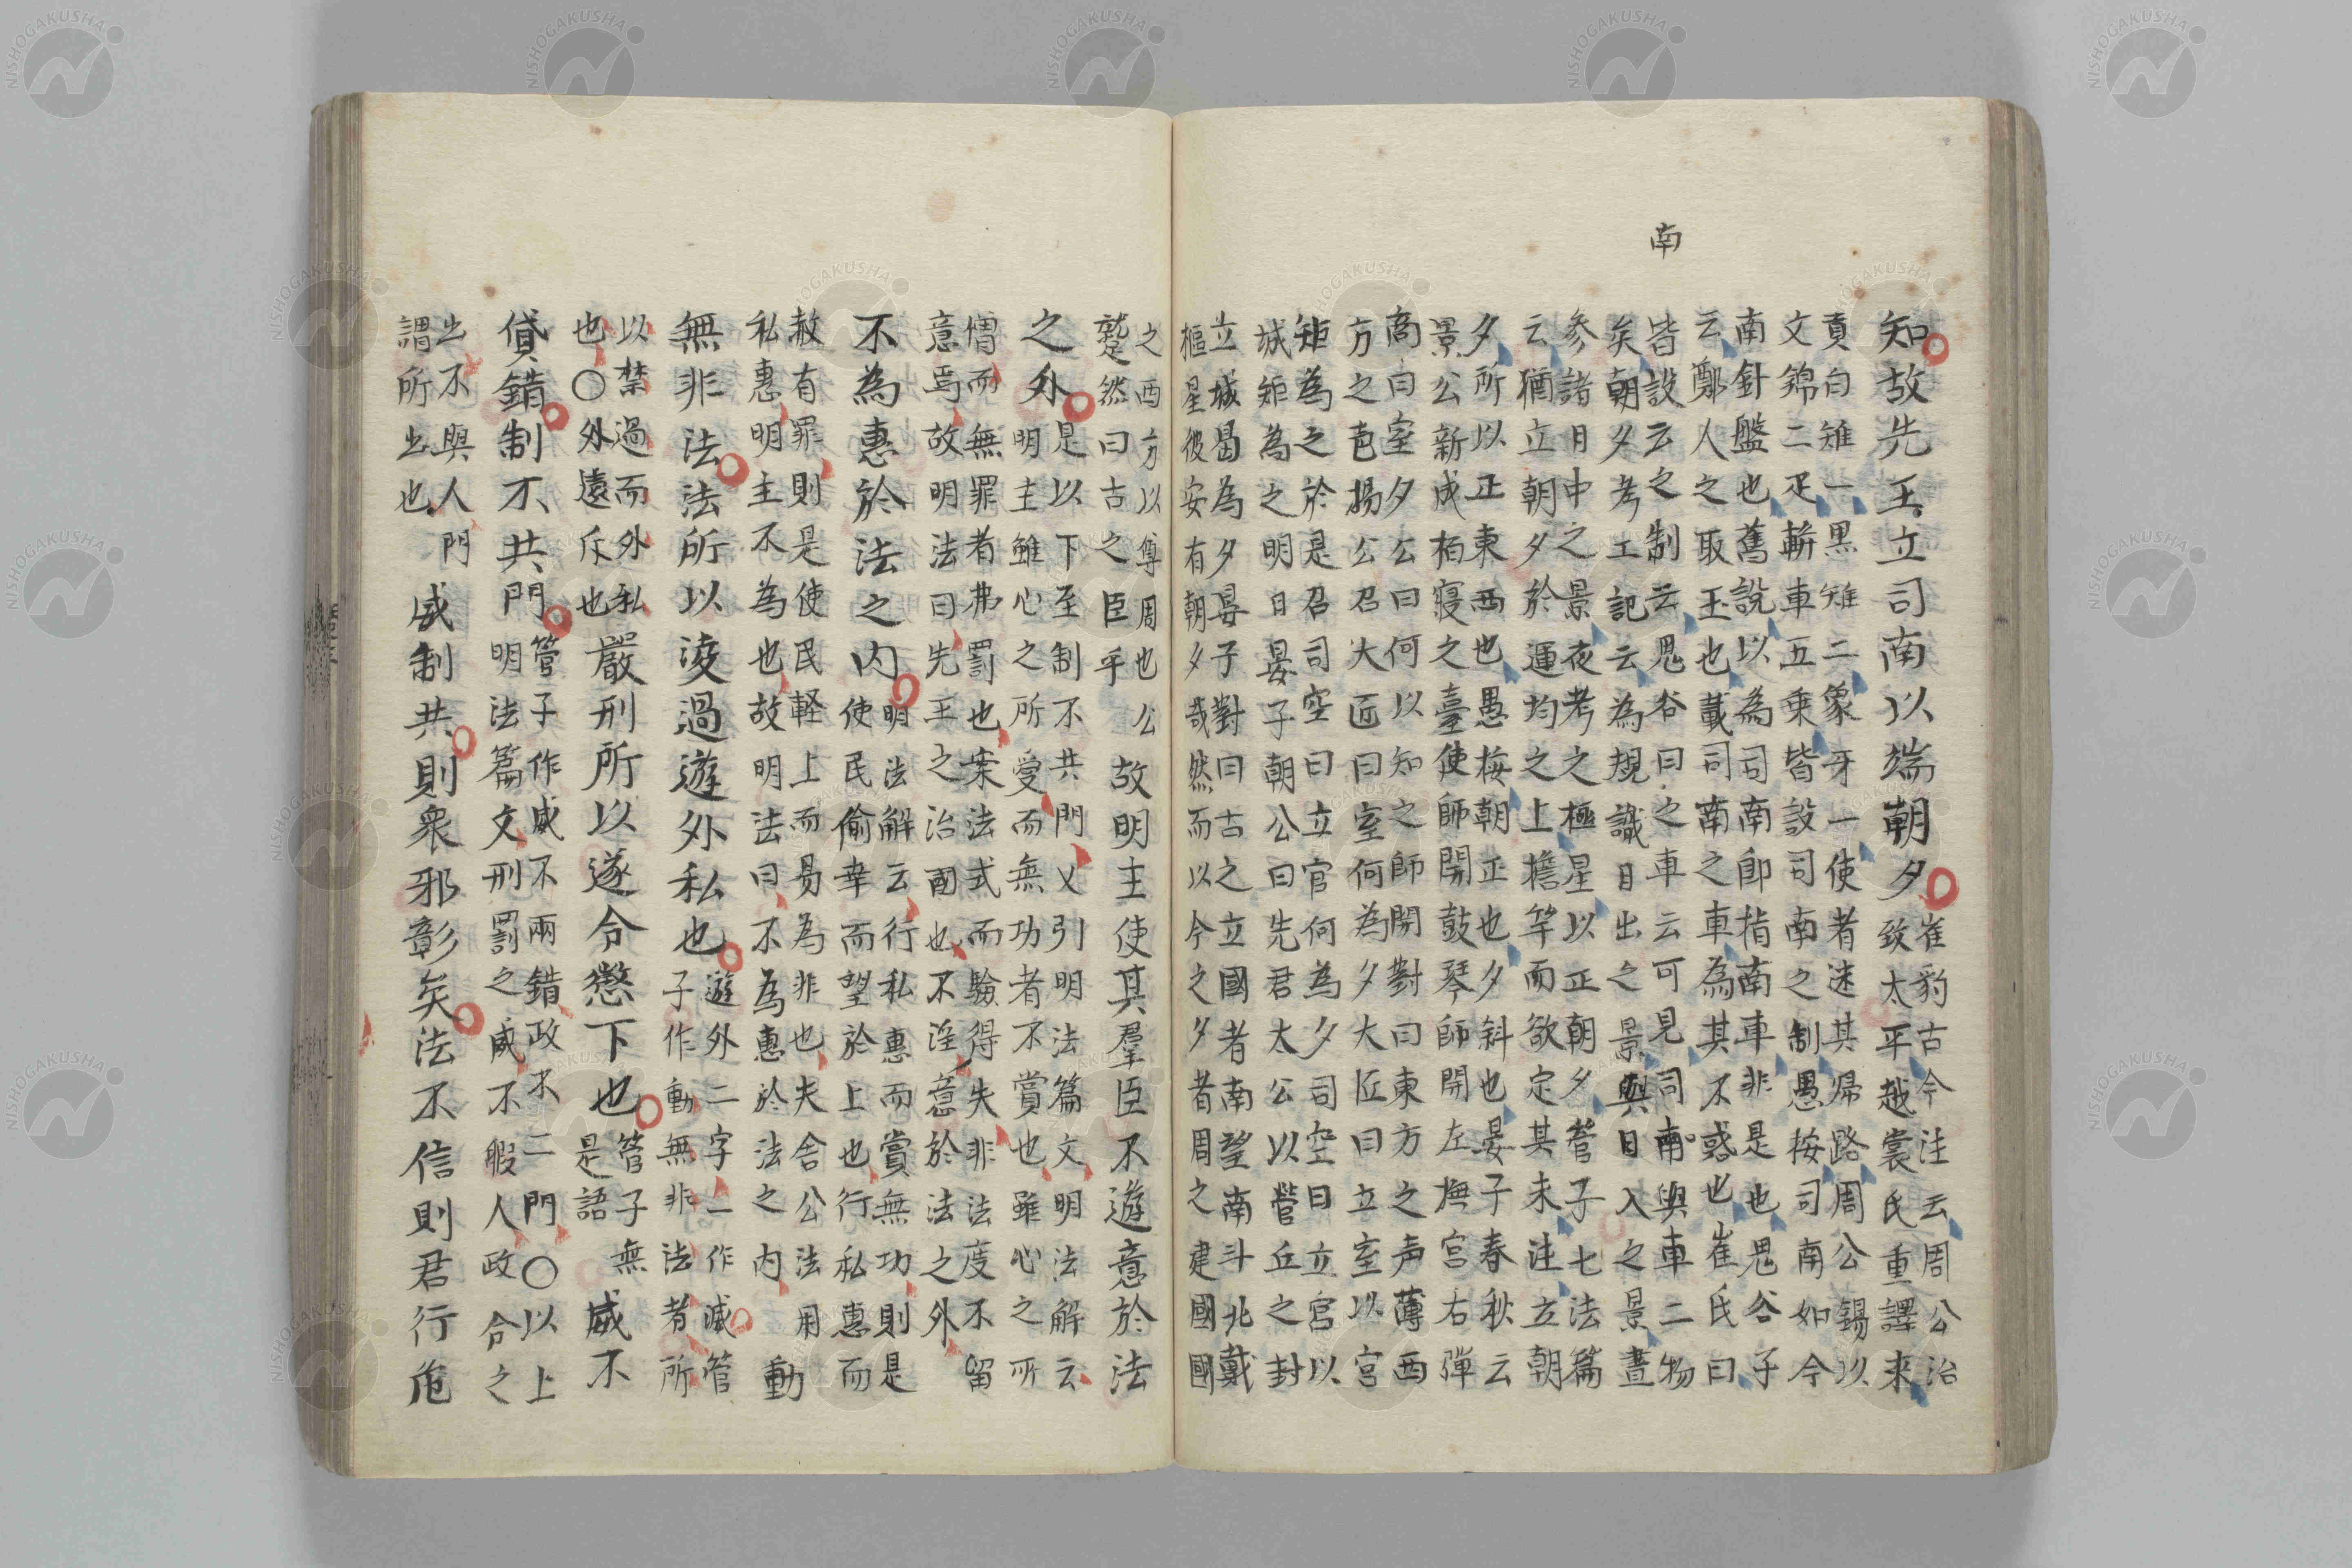 南
知故先王立司南以端朝夕
崔豹古今注云周公治
致太平越裳氏重譯来
貢白雉一黒雉二象牙一使者迷其帰路周公錫以
文錦二疋軿車五乗皆設司南之制愚按司南如今
南針盤也舊説以為司南即指南車非是也鬼谷子
云鄭人之取玉也載司南之車為其不惑也崔氏曰
皆設云之制云鬼谷曰之車云可見司南與車二物
矣朝夕考工記云為規識日出之景與日入之景晝
参諸日中之景夜考之極星以正朝夕管子七法篇
云猶立朝夕於運均之上檐竿而欲定其末注立朝
夕所以正東西也愚按朝正也夕斜也晏子春秋云
景公新成栢寝之臺使師開鼓琴師開左撫宮右彈
商曰室夕公曰何以知之師開對曰東方之声薄西
方之邑揚公召大匠曰室何為夕大匠曰立室以宮
矩為之於是召司空曰立官何為夕司空曰立宮以
城矩為之明日晏子朝公曰先君太公以營丘之封
立城曷為夕晏子對曰古之立國者南望南斗北戴
樞星彼安有朝夕哉然而以今之夕者周之建國國
之西方以尊周也公
蹵然曰古之臣乎
故明主使其羣臣不遊意於法
之外
是以下至制不共門乂引明法篇文明法解云
明主雖心之所受而無功者不賞也雖心之所
憎而無罪者弗罰也案法式而驗得失非法度不留
意焉故明法曰先王之治國也不淫意於法之外
不為惠於法之内
明法解云行私惠而賞無功則是
使民偷幸而望於上也行私惠而
赦有罪則是使民軽上而易為非也夫舍公法用
私惠明主不為也故明法曰不為惠於法之内
動
無非法法所以淩過遊外私也
遊外二字一作滅管
子作動無非法者所
以禁過而外私
也○外遠斥也
嚴刑所以遂令懲下也
管子無
是語
威不
貸錯制不共門
管子作威不兩錯政不二門○以上
明法篇文刑罰之威不假人政令之
出不與人門
謂所出也
威制共則衆邪彰矣法不信則君行危